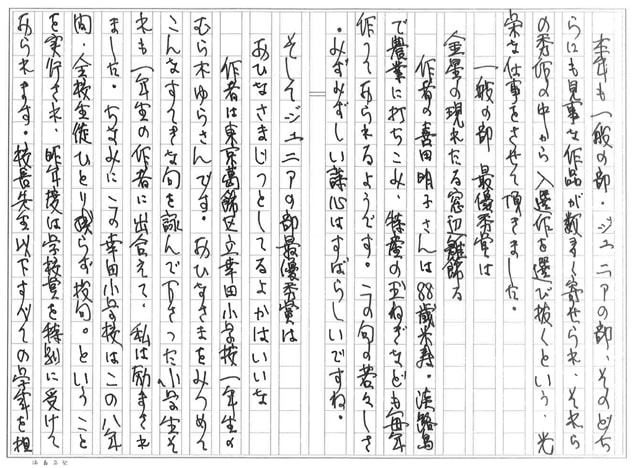 本年も一般の部・ジュニアの部、そのどち
らにも見事な作品が数多く寄せられ、それら
の秀作の中から入選作を選び抜くという、光
栄な仕事をさせて頂きました。
一般の部 最優秀賞は
金星の現れたる窓辺雛飾る
作者の喜田明子さんは88歳米寿。淡路島
で農業に打ちこみ、特産の玉ねぎなども毎年
作っておられるようです。この句の若々しさ
。みずみずしい詠心はすばらしいですね。
そしてジュニアの部最優秀賞は
おひなさまじっとしてるよかはいいな
作者は東京葛飾区立幸田小学校一年生の
むら木ゆらさんです。おひなさまをみつめて
こんなすてきな句を詠んで下さった小学生そ
れも一年生の作者に出合えて、私は励まされ
ました。ちなみにこの幸田小学校はこの八年
間、全校生徒ひとり残らず投句。ということ
を実行され、昨年度は学校賞を特別に受けて
おられます。校長先生以下すべての学年を担